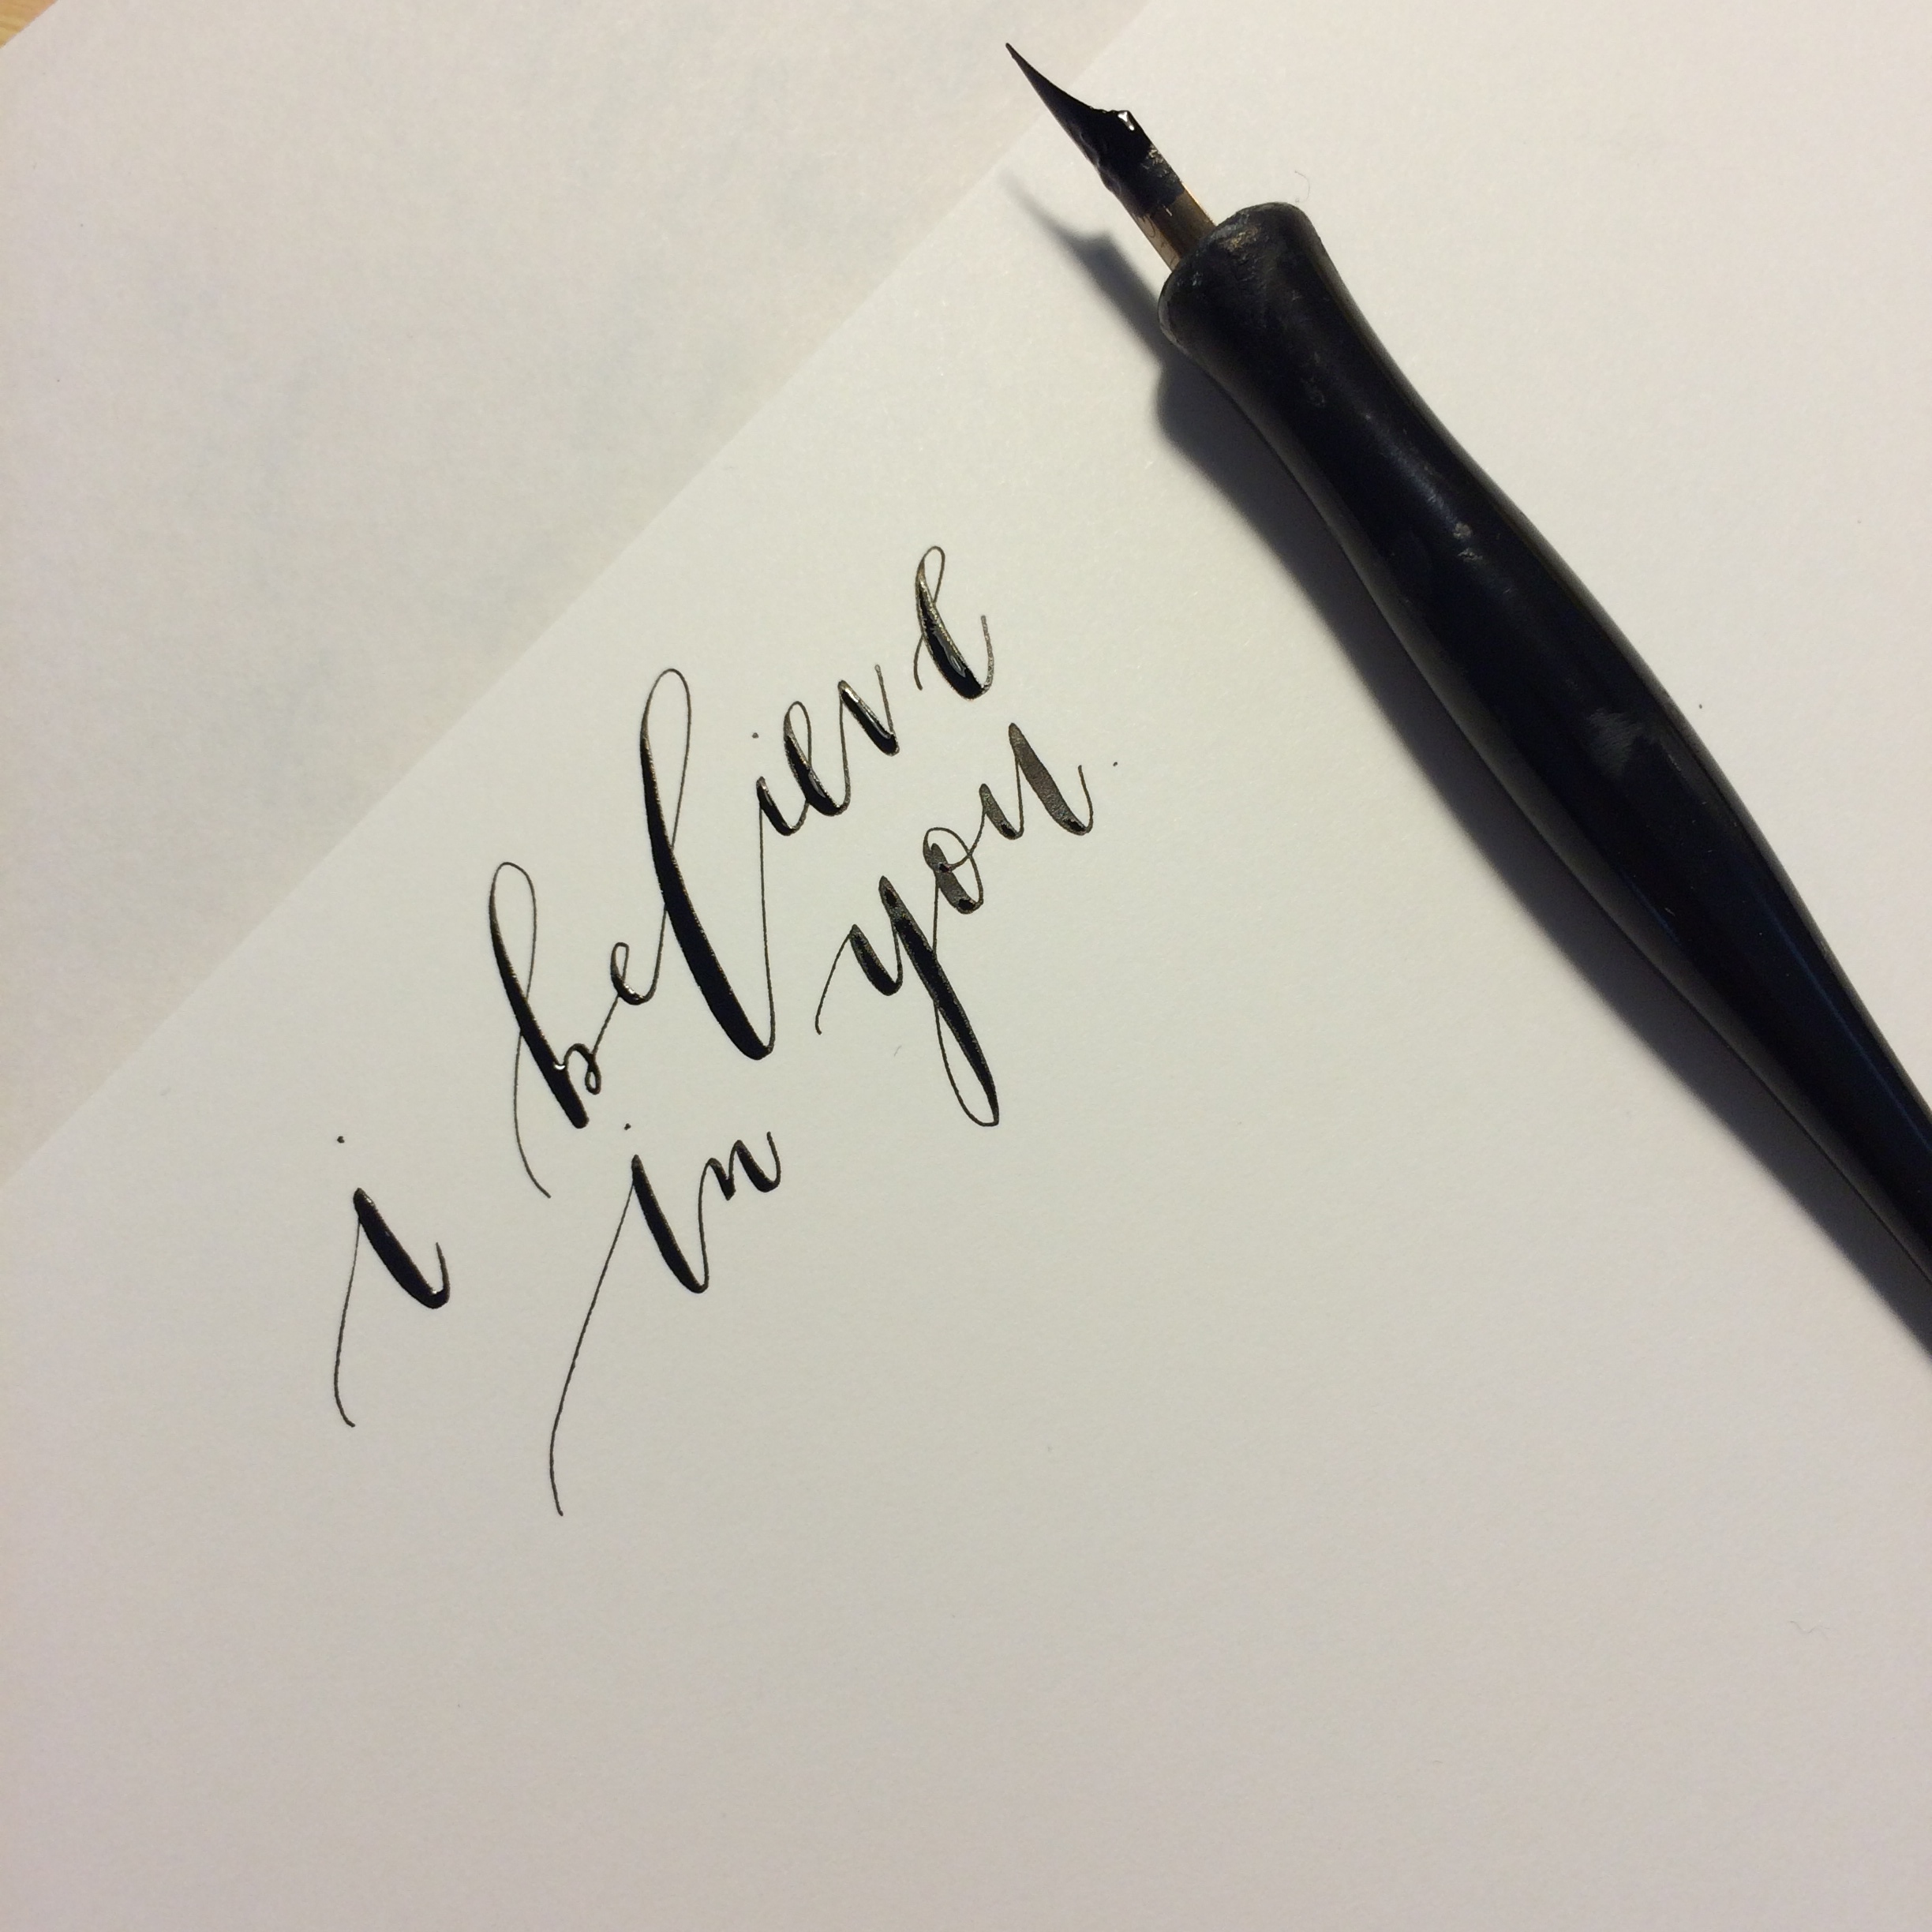 i believe
in you